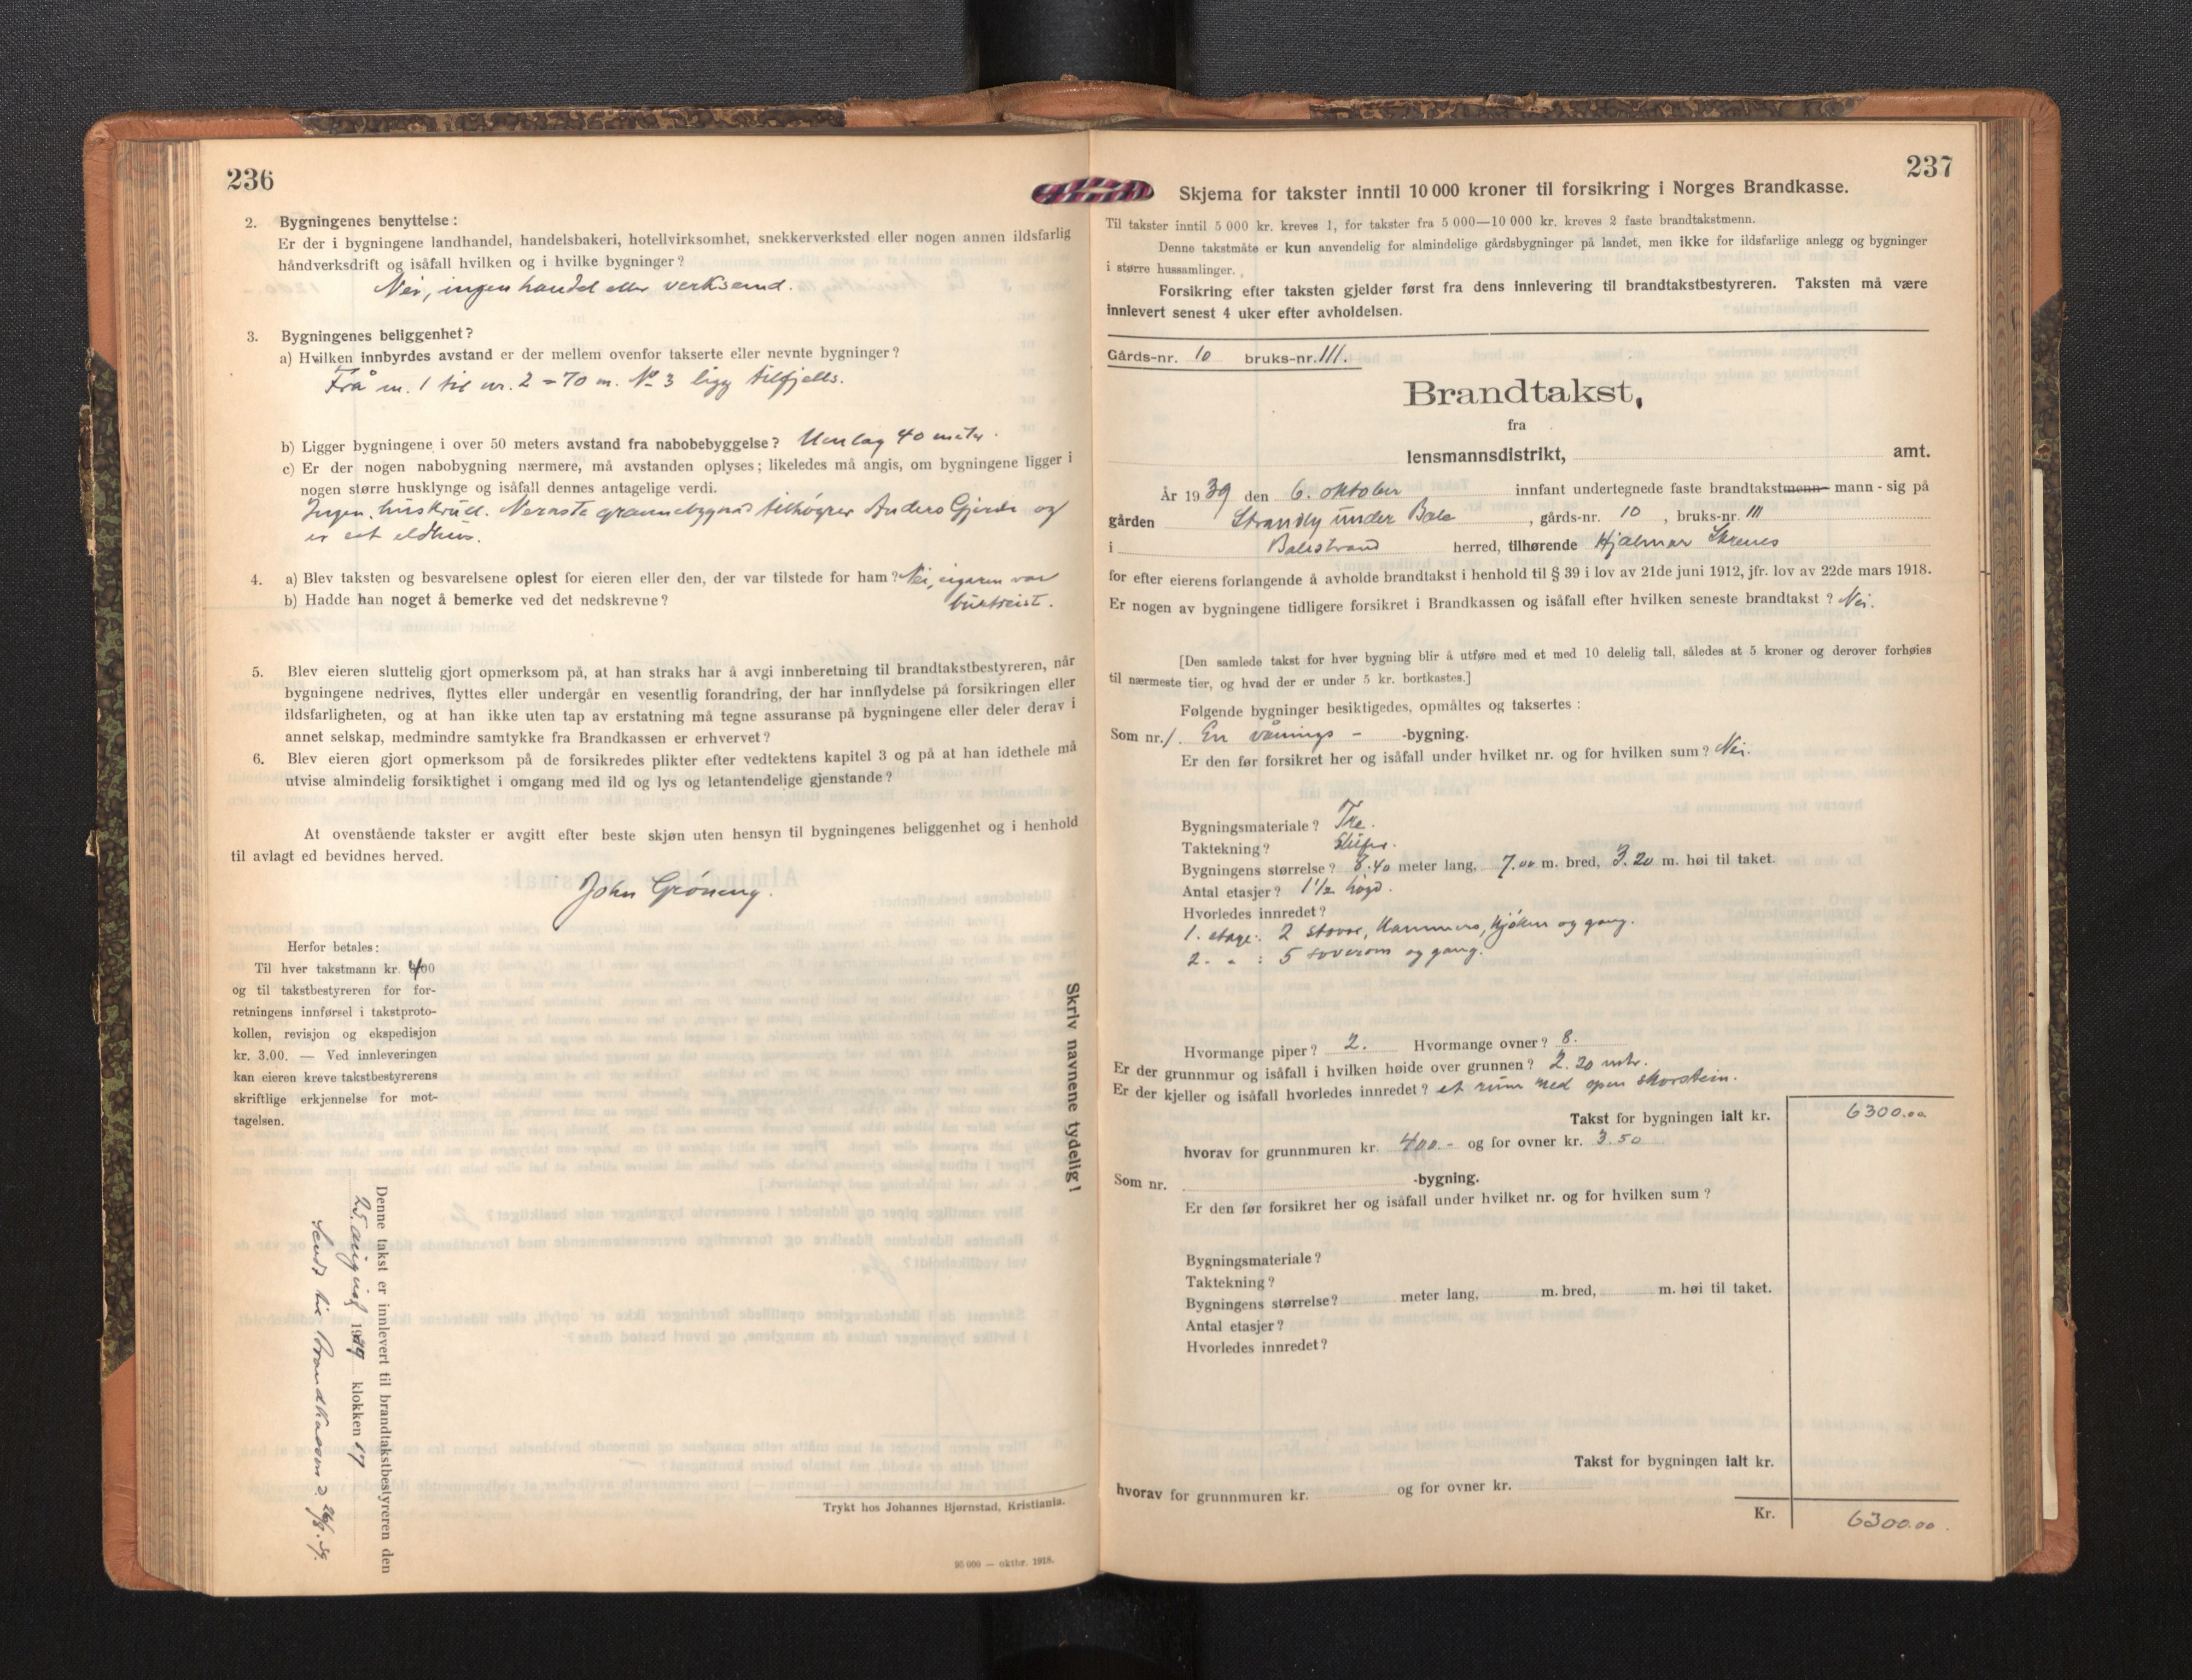 236
2. Bygningenes benyttelse:
Er der i bygningene landhandel, handelsbakeri, hotellvirksomhet, snekkerverksted eller nogen annen ildsfarlig
håndverksdrift og isåfall hvilken og i hvilke bygninger?
Nei, ingen handel eller verksemd.
3. Bygningenes beliggenhet?
a) Hvilken innbyrdes avstand er der mellem ovenfor takserte eller nevnte bygninger?
Frå nr. 1 til nr. 2 = 70 m. No 3 ligg tilfjells.
b) Ligger bygningene i over 50 meters avstand fra nabobebyggelse? Umlag 40 meter.
c) Er der nogen nabobygning nærmere, må avstanden oplyses; likeledes må angis, om bygningene ligger i
nogen større husklynge og isåfall dennes antagelige verdi.
Ingen huskrúll. Næraste grannebygnad tilhøyrer Anders Gjerde og
er eit eldhús.
4. a) Blev taksten og besvarelsene oplest for eieren eller den, der var tilstede for ham? Nei, eigaren var
b) Hadde han noget å bemerke ved det nedskrevne? burtreist.
5. Blev eieren sluttelig gjort opmerksom på, at han straks har å avgi innberetning til brandtakstbestyreren, når
bygningene nedrives, flyttes eller undergår en vesentlig forandring, der har innflydelse på forsikringen eller
ildsfarligheten, og at han ikke uten tap av erstatning må tegne assuranse på bygningene eller deler derav i
annet selskap, medmindre samtykke fra Brandkassen er erhvervet?
6. Blev eieren gjort opmerksom på de forsikredes plikter efter vedtektens kapitel 3 og på at han idethele må
utvise almindelig forsiktighet i omgang med ild og lys og letantendelige gjenstande?
At ovenstående takster er avgitt efter beste skjøn uten hensyn til bygningenes beliggenhet og i henhold
til avlagt ed bevidnes herved.
John Grøneng.
Herfor betales:
Til hver takstmann kr. 4.00
og til takstbestyreren for for-
retningens innførsel i takstproto-
kollen, revisjon og ekspedisjon
kr. 3.00. — Ved innleveringen
kan eieren kreve takstbestyrerens
skriftlige erkjennelse for mot-
tagelsen.
Skriv navnene tydelig!
Denne takst er innlevert til brandtakstbestyreren den
25. august 1939 klokken 17
Sendt til Brandkassen d. 26/8.39.
Trykt hos Johannes Bjørnstad, Kristiania.
95 000 — oktbr. 1918.
237
Skjema for takster inntil 10 000 kroner til forsikring i Norges Brandkasse.
Til takster inntil 5 000 kr. kreves 1, for takster fra 5 000—10 000 kr. kreves 2 faste brandtakstmenn.
Denne takstmåte er kun anvendelig for almindelige gårdsbygninger på landet, men ikke for ildsfarlige anlegg og bygninger
i større hussamlinger.
Forsikring efter taksten gjelder først fra dens innlevering til brandtakstbestyreren. Taksten må være
innlevert senest 4 uker efter avholdelsen.
Gårds-nr. 10 bruks-nr. 111.
Brandtakst,
fra
lensmannsdistrikt, amt.
År 1939 den 6. oktober innfant undertegnede faste brandtakstmenn - mann - sig på
gården Strandly under Bale, gårds-nr. 10, bruks-nr. 111
i Balestrand herred, tilhørende Hjalmar Skrenes
for efter eierens forlangende å avholde brandtakst i henhold til § 39 i lov av 21de juni 1912, jfr. lov av 22de mars 1918.
Er nogen av bygningene tidligere forsikret i Brandkassen og isåfall efter hvilken seneste brandtakst? Nei.
[Den samlede takst for hver bygning blir å utføre med et med 10 delelig tall, således at 5 kroner og derover forhøies
til nærmeste tier, og hvad der er under 5 kr. bortkastes.]
Følgende bygninger besiktigedes, opmåltes og taksertes:
Som nr. 1. En vånings - -bygning.
Er den før forsikret her og isåfall under hvilket nr. og for hvilken sum? Nei.
Bygningsmateriale? Tre.
Taktekning? Skifer.
Bygningens størrelse? 8.40 meter lang, 7.00 m. bred, 3.20 m. høi til taket.
Antal etasjer? 1 1/2 høgd.
Hvorledes innredet?
1. etage: 2 stover, kammers, kjøken og gang.
2. " : 5 soverom og gang.
Hvormange piper? 2. Hvormange ovner? 8.
Er der grunnmur og isåfall i hvilken høide over grunnen? 2.20 mtr.
Er der kjeller og isåfall hvorledes innredet? et rúm med open skorstein.
Takst for bygningen ialt kr. 6300.00
hvorav for grunnmuren kr. 400.- og for ovner kr. 3.50
Som nr. -bygning.
Er den før forsikret her og isåfall under hvilket nr. og for hvilken sum?
Bygningsmateriale?
Taktekning?
Bygningens størrelse? meter lang, m. bred, m. høi til taket.
Antal etasjer?
Hvorledes innredet?
Takst for bygningen ialt kr.
hvorav for grunnmuren kr. og for ovner kr.
Kr. 6300.00.